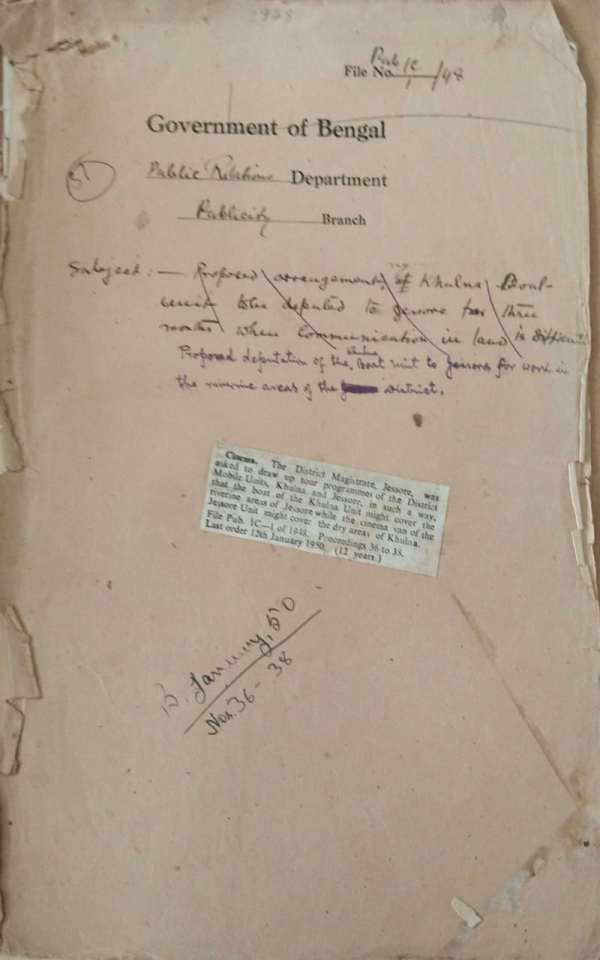 File No. Pub 1C/1/48
Government of Bengal
Public Relations Department
Publicity Branch
Subject :— Proposed arrangement of Khulna Boat-
unit to be deputed to Jessore for three
months when communication in land is difficult.
Proposed deputation of the Khulna Boat unit to Jessore for work in
the riverine areas of the District.
Cinema. The District Magistrate, Jessore, was
asked to draw up tour programmes of the District
Mobile Units, Khulna and Jessore, in such a way,
that the boat of the Khulna Unit might cover the
riverine areas of Jessore while the cinema van of the
Jessore Unit might cover the dry areas of Khulna.
File Pub. 1C—1 of 1948. Proceedings 36 to 38.
Last order 12th January 1950. (12 years.)
B. January, 50
Nos. 36 - 38